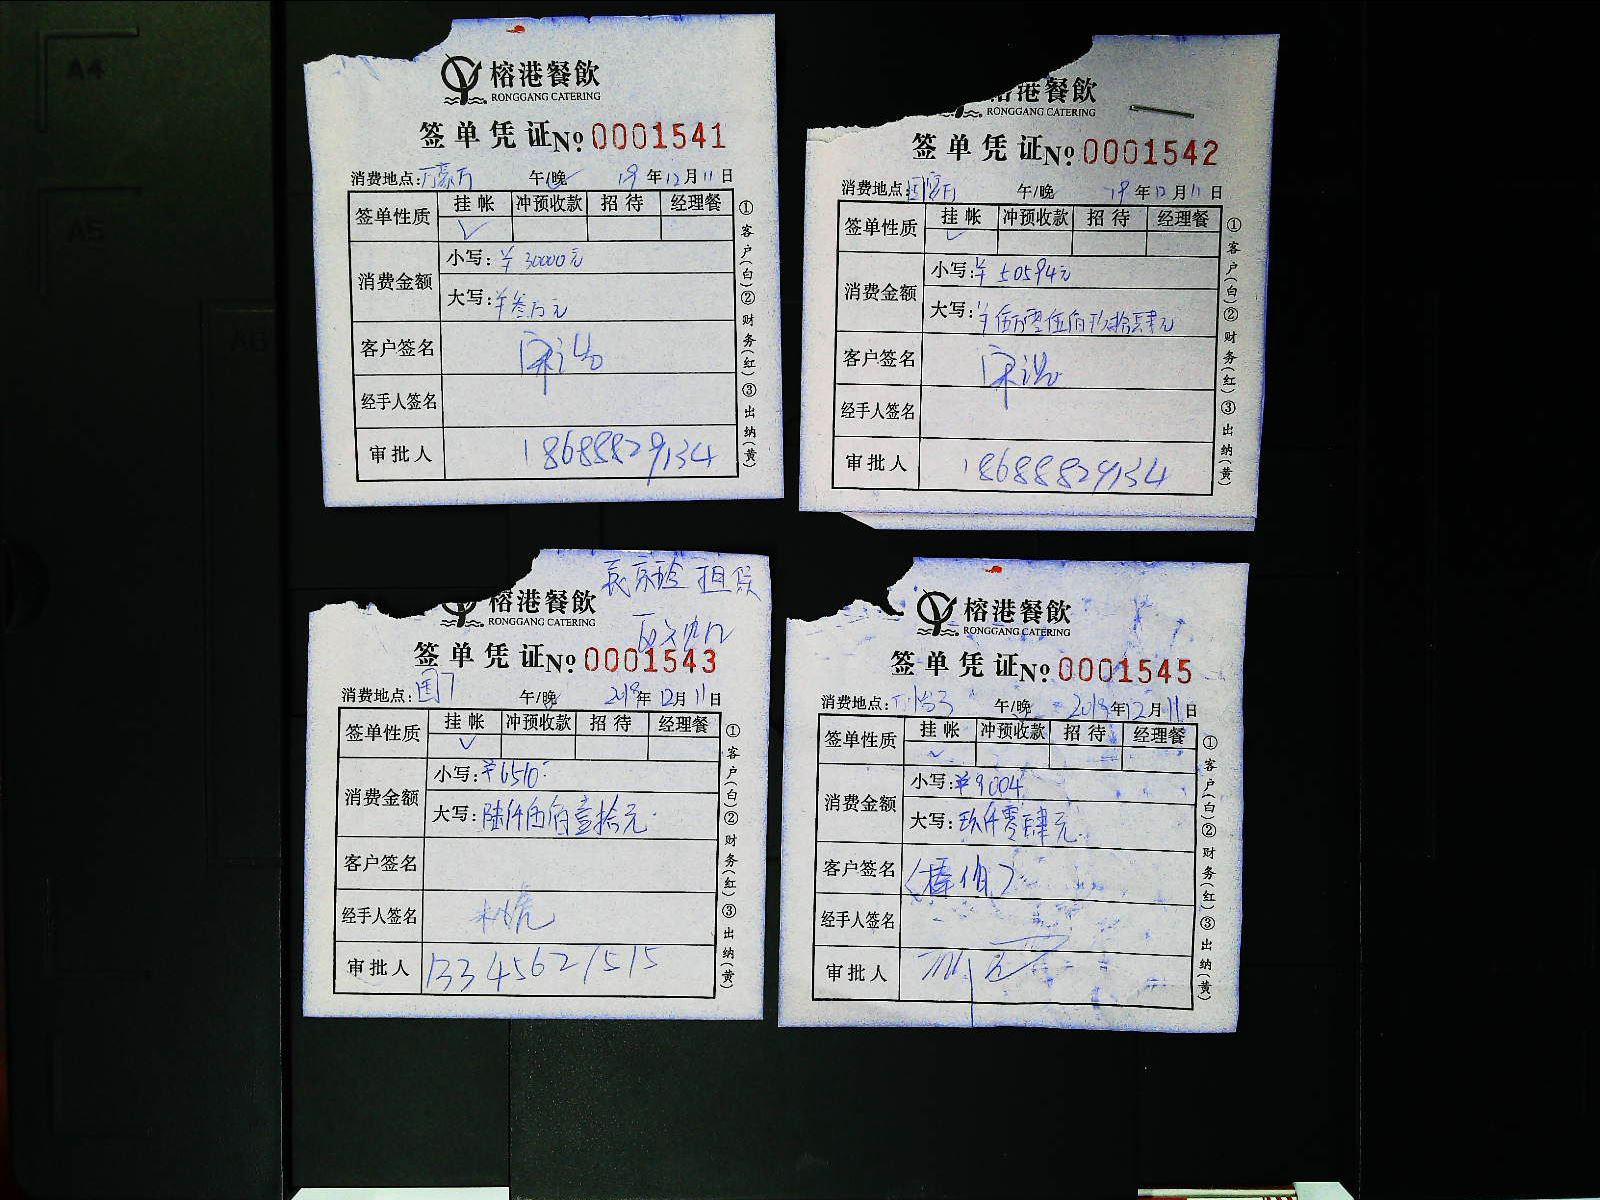 榕港餐飲
RONGGANG CATERING
签单凭证 No 0001541
消费地点: 午/晚 19年12月11日
签单性质 挂帐 冲预收款 招待 经理餐
✓
消费金额 小写:¥30000元
大写:¥叁万元
客户签名
经手人签名
审批人 18688829134
①客户(白)②财务(红)③出纳(黄)
榕港餐飲
RONGGANG CATERING
签单凭证 No 0001542
消费地点: 午/晚 19年12月11日
签单性质 挂帐 冲预收款 招待 经理餐
✓
消费金额 小写:¥50594元
大写:¥伍万零伍佰玖拾肆元
客户签名
经手人签名
审批人 18688829134
①客户(白)②财务(红)③出纳(黄)
担保
榕港餐飲
RONGGANG CATERING
签单凭证 No 0001543
消费地点: 午/晚 2019年12月11日
签单性质 挂帐 冲预收款 招待 经理餐
✓
消费金额 小写:¥6510
大写:陆仟伍佰壹拾元
客户签名
经手人签名
审批人 13345621515
①客户(白)②财务(红)③出纳(黄)
榕港餐飲
RONGGANG CATERING
签单凭证 No 0001545
消费地点: 午/晚 2019年12月11日
签单性质 挂帐 冲预收款 招待 经理餐
消费金额 小写:¥9004
大写:玖仟零肆元
客户签名
经手人签名
审批人
①客户(白)②财务(红)③出纳(黄)
A4
A5
A6